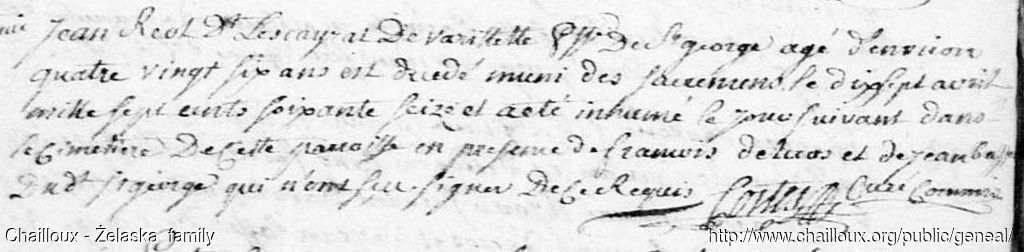 Jean Reol Dt Lescayrat De varillette psse De st george agé d'environ
quatre vingt six ans est decedé muni des sacremens le dixsept avril
mille sept cents soixante seize et a eté inhumé le jour suivant dans
le Cimetiere De Cette paroisse en presence de francois delucos et de jean
Dudt st george qui n'ont sçu signer De Ce Requis Curé Commis
Chailloux - Żelaska family
http://www.chailloux.org/public/geneal/